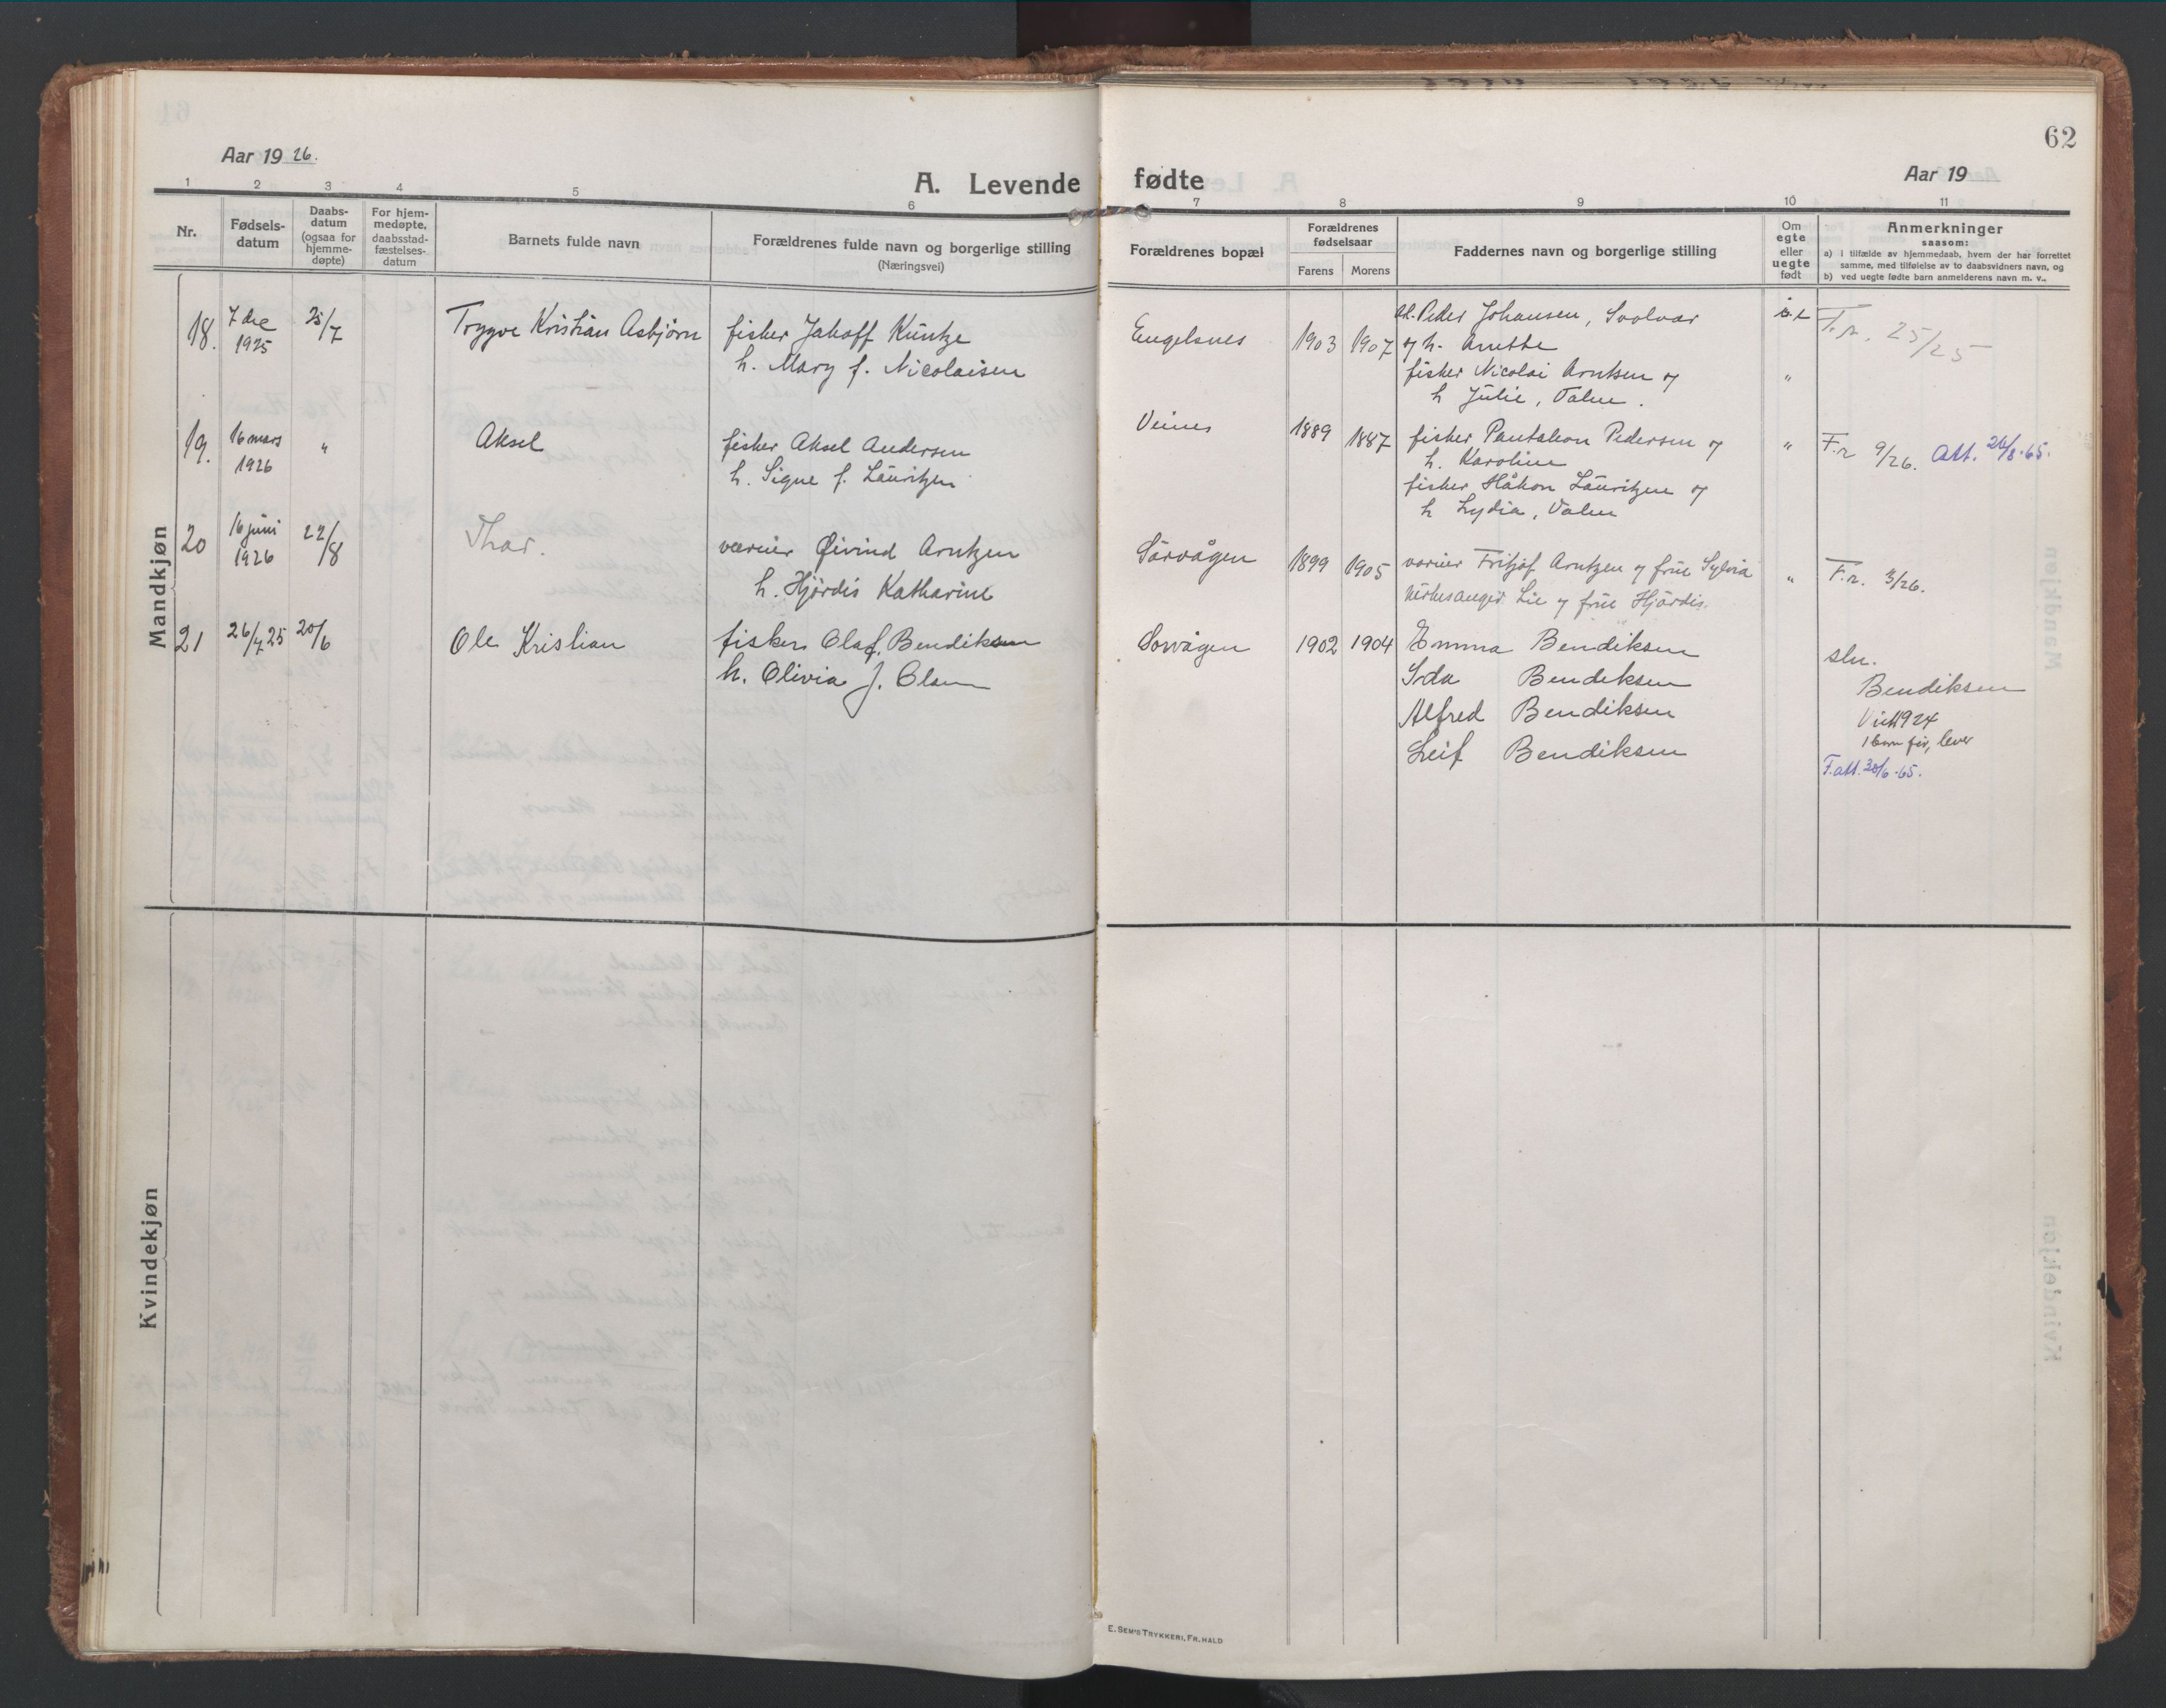 62
Aar 19 26.
Aar 19
A. Levende fødte
1 2 3 4 5 6 7 8 9 10 11
Nr.
Fødsels-
datum
Daabs-
datum
(ogsaa for
hjemme-
døpte)
For hjem-
medøpte,
daabsstad-
fæstelses-
datum
Barnets fulde navn
Forældrenes fulde navn og borgerlige stilling
(Næringsvei)
Forældrenes bopæl
Forældrenes
fødselsaar
Farens Morens
Faddernes navn og borgerlige stilling
Om
egte
eller
uegte
født
Anmerkninger
saasom:
a) i tilfælde av hjemmedaab, hvem der har forrettet
samme, med tilføielse av to daabsvidners navn, og
b) ved uegte fødte barn anmelderens navn m. v.
Mandkjøn
18.
7 de
1925
25/7
Trygve Kristian Asbjørn
fisker Jakoff Küntze
h. Mary f. Nicolaisen
Engelsnes
1903 1907
Peder Johansen, Svolvær
og h. Anette
fisker Nicolai Arntsen og
h Julie, Valen.
F.r. 25/25
19.
16 mars
1926
"
Aksel
fisker Aksel Andersen
h. Signe f. Lauritzen
Veines
1889 1887
fisker Pantaleon Pedersen og
h. Karoline
fisker Håkon Lauritzen og
h Lydia, Valen
"
F.r 9/26. Att. 26/8.65.
20
16 juni
1926
22/8
Thor.
væreier Øivind Arntzen
h. Hjørdis Katharine
Sørvågen
1899 1905
væreier Fritjof Arntzen og frue Sylvia
kirkesanger Lie og frue Hjørdis.
"
F.r. 3/26.
21
26/7 25
20/6
Ole Kristian
fisker Olaf Bendiksen
h. Olivia f. Olsen
Sørvågen
1902 1904
Emma Bendiksen
Ida Bendiksen
Alfred Bendiksen
Leif Bendiksen
Bendiksen
Viet 1924
1 barn før, lever
F.att. 30/6.65.
Kvindekjøn
E. Sem's Trykkeri, Fr.hald